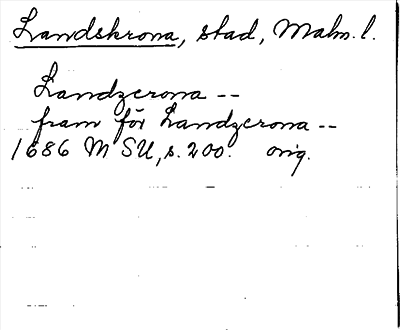 Landskrona, stad, Malm. l.
Landzcrona --
fram för Landzcrona --
1686 M SU, s. 200. orig.